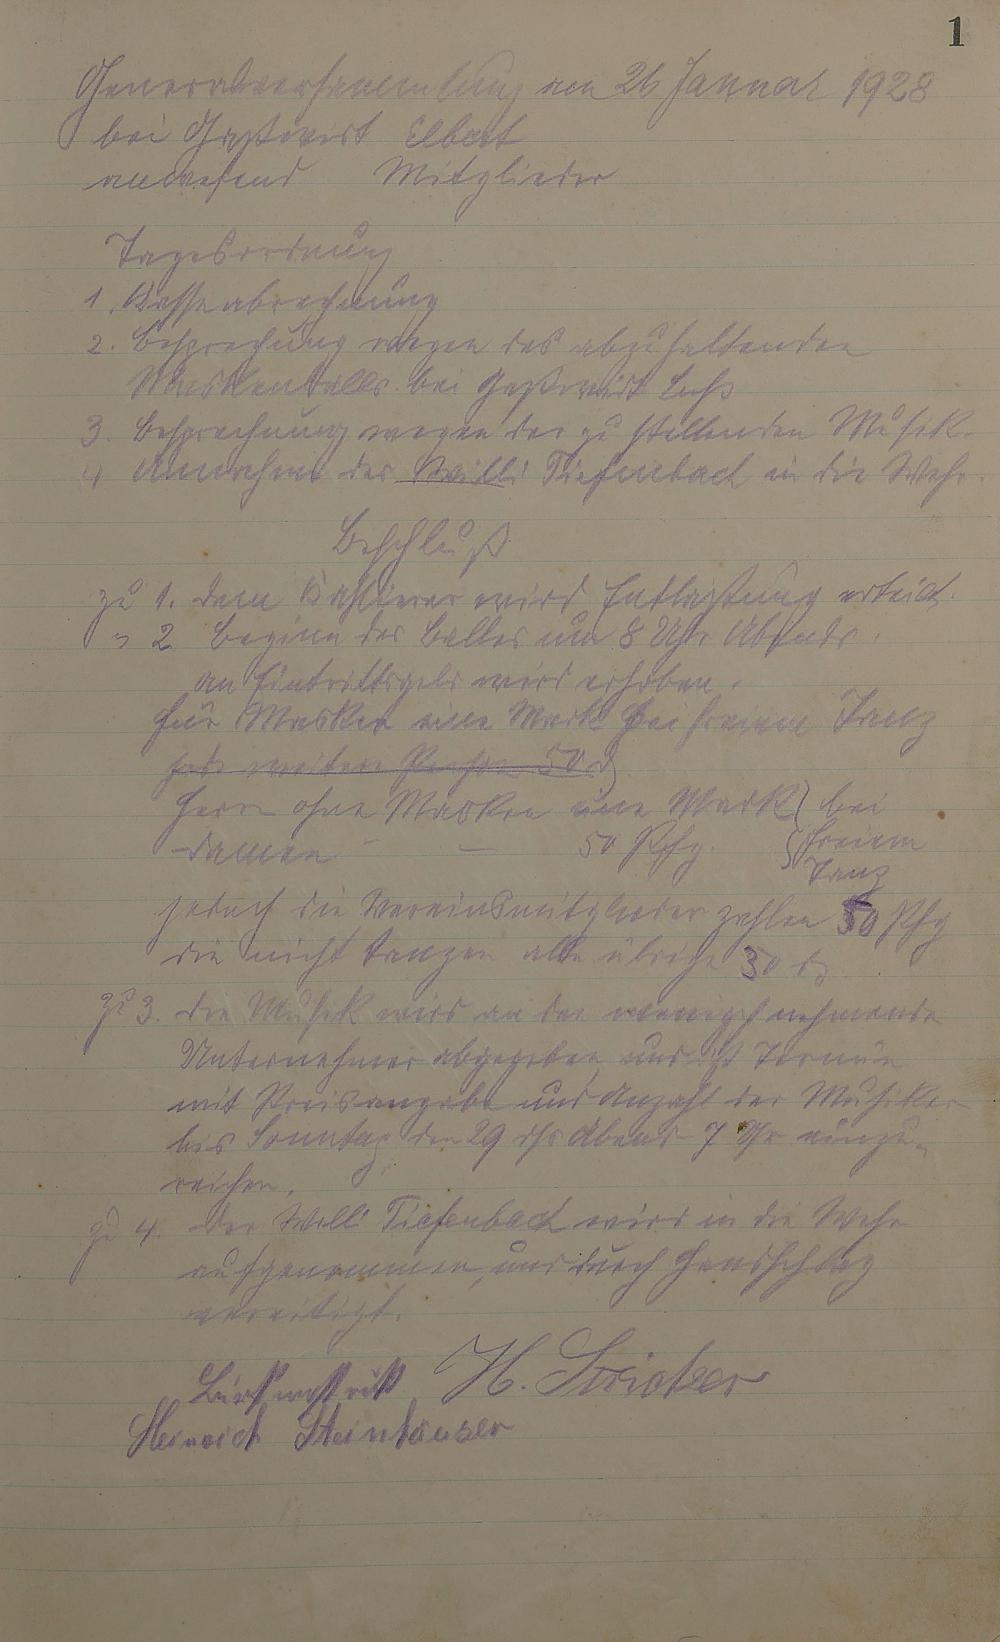 1
Generalversammlung am 26 Januar 1928
bei Gastwirt Elbert
anwesend Mitglieder
Tagesordnung
1. Kasseabrechnung
2. Besprechung wegen des abzuhaltenden
Maskenballs bei Gastwirt
3. Besprechnung wegen der zu stellenden Musik.
4 Annahme des Willi Tiefenbach in die Wehr.
Beschluß
zu 1. dem Kassierer wird Entlastung erteilt.
" 2 Beginn des Balles um 8 Uhr Abends.
an Eintrittsgeld wird erhoben.
für Masken eine Mark bei freiem Tanz
jede weitere Person 50 ₰
Herrn ohne Masken eine Mark } bei
damen " — 50 Pfg. } freiem
Tanz
jedoch die Vereinsmitglieder zahlen 50 Pfg
die nicht tanzen alle übrige 30 ₰
zu 3. die Musik wird an den wenigst nehmende
Unternehmer abgegeben und ist Termin
mit Preisangabe und Anzahl der Musiker
bis Sonntag den 29 ds Abend 7 Uhr einzu-
reichen.
zu 4. der Willi Tiefenbach wird in die Wehr
aufgenommen, und durch Handschlag
vereitigt.
H.
Heinrich Steinhäuser